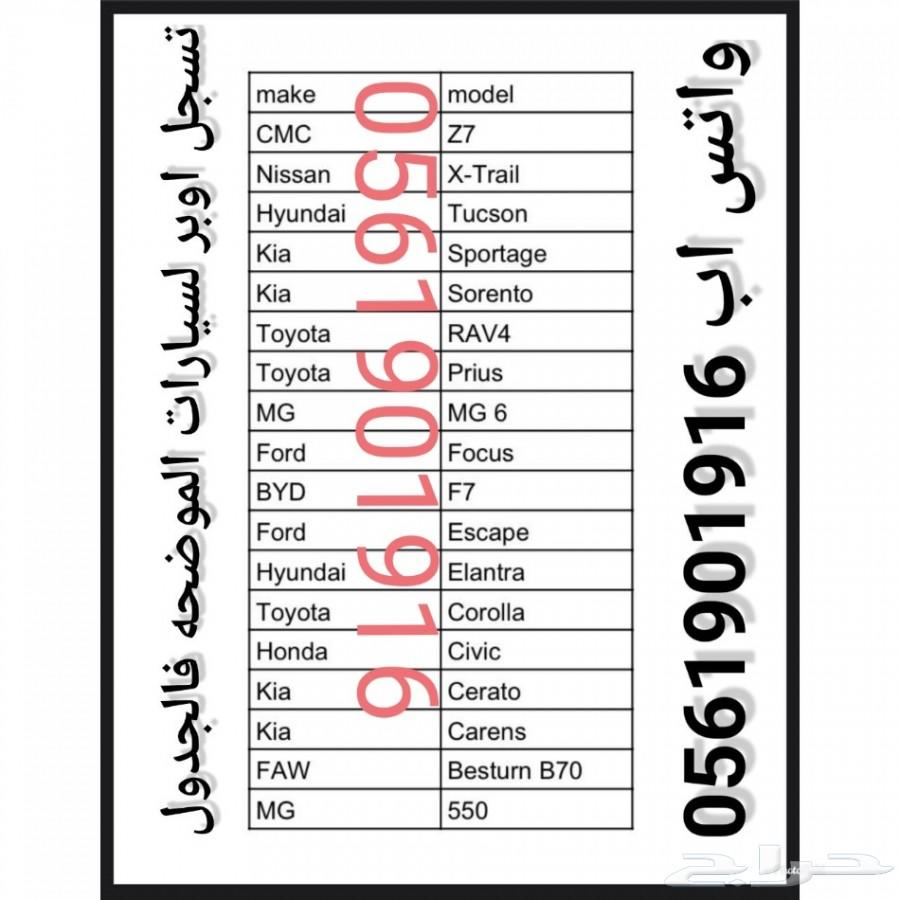 تسجل اوبر لسيارات الموضحه فالجدول
make model
CMC Z7
Nissan X-Trail
Hyundai Tucson
Kia Sportage
Kia Sorento
Toyota RAV4
Toyota Prius
MG MG 6
Ford Focus
BYD F7
Ford Escape
Hyundai Elantra
Toyota Corolla
Honda Civic
Kia Cerato
Kia Carens
FAW Besturn B70
MG 550
0561901916
واتس اب 0561901916
حراج